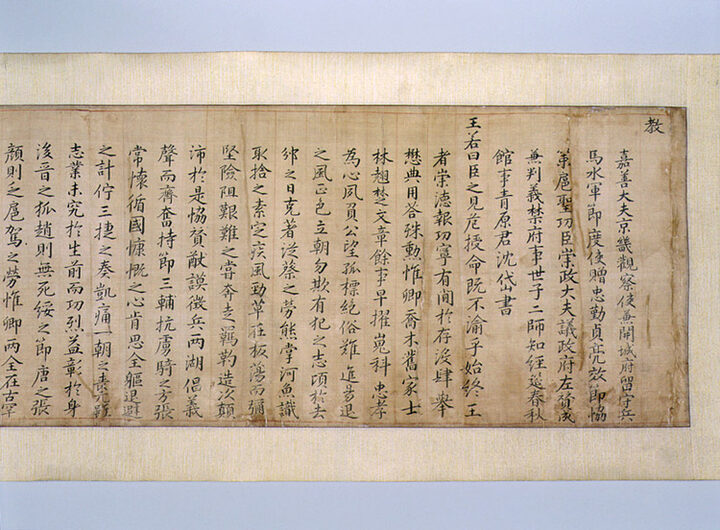 教
嘉善大夫京畿觀察使兼開城府留守兵
馬水軍節度使贈忠勤貞亮效節協
策扈聖功臣崇政大夫議政府左贊成
兼判義禁府事世子二師知經筵春秋
館事青原君沈岱書
王若曰臣之見危授命既不渝于始終王
者崇德報功寧有間於存沒肆舉
懋典用答殊勳惟卿喬木舊家士
林趨楚文章餘事早擢嵬科忠孝
為心夙負公望孤標絕俗難進易退
之風正色立朝勿欺有犯之志頃於去
邠之日克著從蔡之勞熊掌河魚識
取捨之素定疾風勁草在板蕩而彌
堅險阻艱難之嘗奔走羈靮造次顛
沛於是恊贊猷謨徵兵兩湖倡義
聲而齊奮持節三輔抗虜騎之方張
常懷循國慷慨之心肯思全軀退避
之計佇三捷之奏凱痛一朝之
志業未究於生前而功烈益彰於身
後晉之狐趙則無死綏之節唐之張
顏則乏扈駕之勞惟卿兩全在古罕